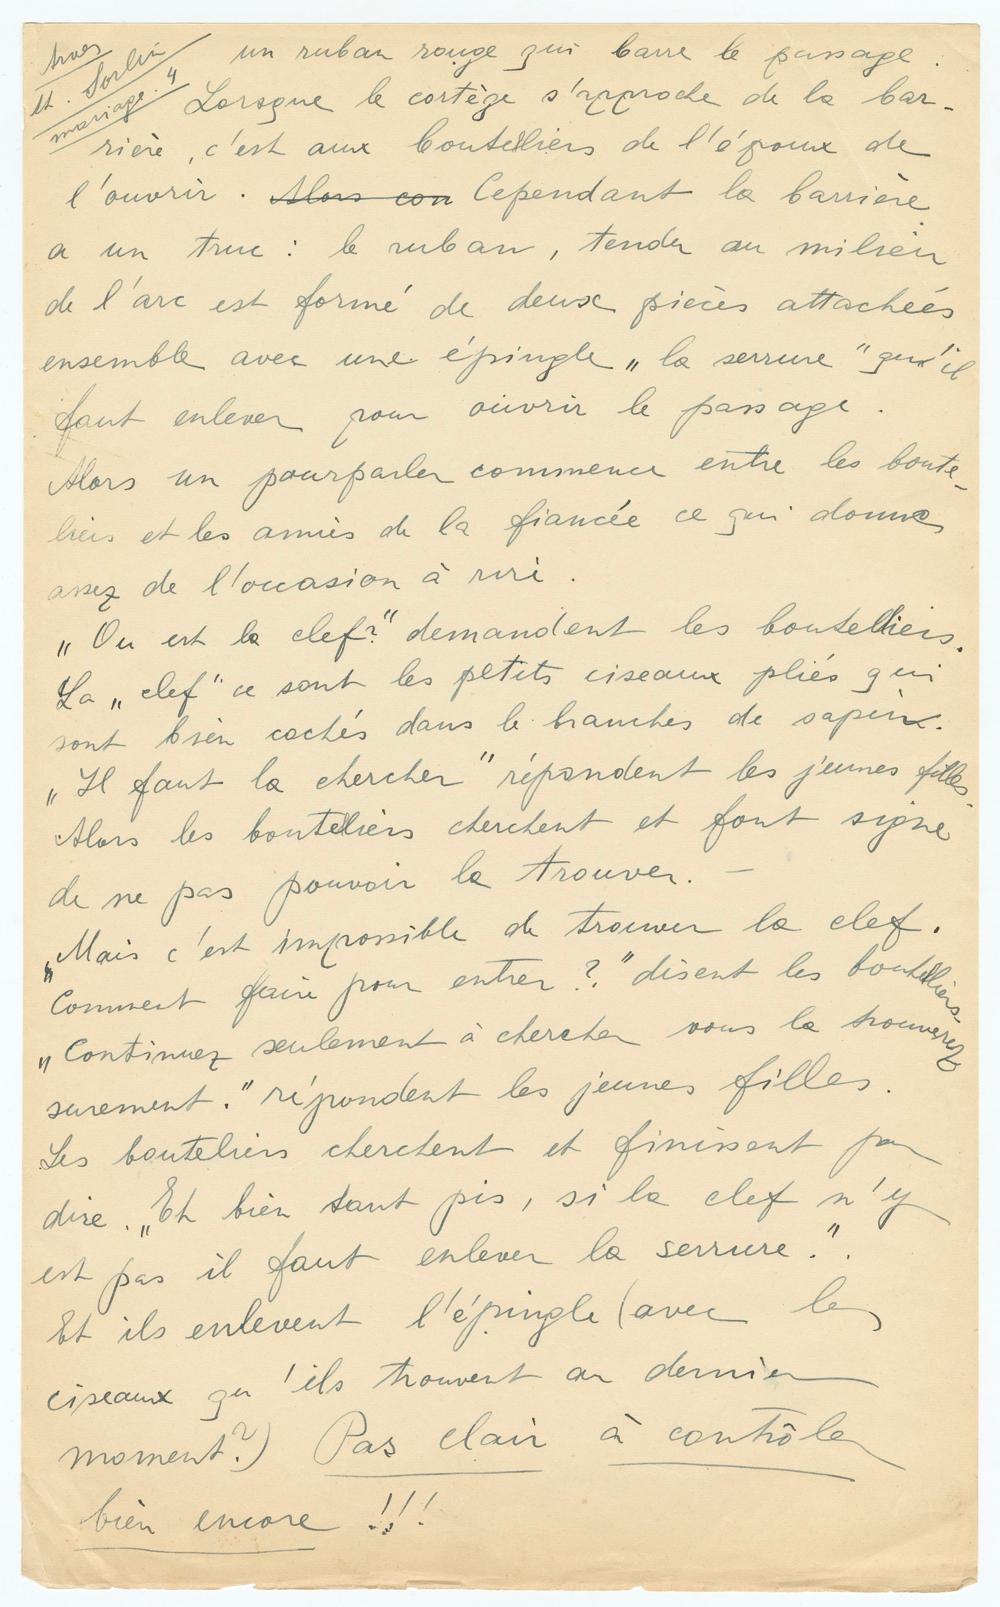 Arves
St. Sorlin
mariage. 4
un ruban rouge qui barre le passage.
Lorsque le cortège s'approche de la bar-
rière, c'est aux bouteilliers de l'époux de
l'ouvrir. Alors con Cependant la barrière
a un truc : le ruban, tendu au milieu
de l'arc est formé de deux pièces attachées
ensemble avec une épingle „la serrure" qu'il
faut enlever pour ouvrir le passage.
Alors un pourparler commence entre les boute-
liers et les amies de la fiancée ce qui donne
assez de l'occasion à rire.
„Ou est la clef?" demandent les bouteilliers.
La „clef" ce sont les petits ciseaux pliés qui
sont bien cachés dans le branches de sapin.
„Il faut la chercher" répondent les jeunes filles.
Alors les bouteliers cherchent et font signe
de ne pas pouvoir la trouver. –
„Mais c'est impossible de trouver la clef.
Comment faire pour entrer?" disent les bouteilliers.
„Continuez seulement à chercher vous la trouverez
surement." répondent les jeunes filles.
Les bouteliers cherchent et finissent par
dire. „Eh bien tant pis, si la clef n'y
est pas il faut enlever la serrure.".
Et ils enlevent l'épingle (avec les
ciseaux qu'ils trouvent au dernier
moment?) Pas clair à contrôler
bien encore !!!